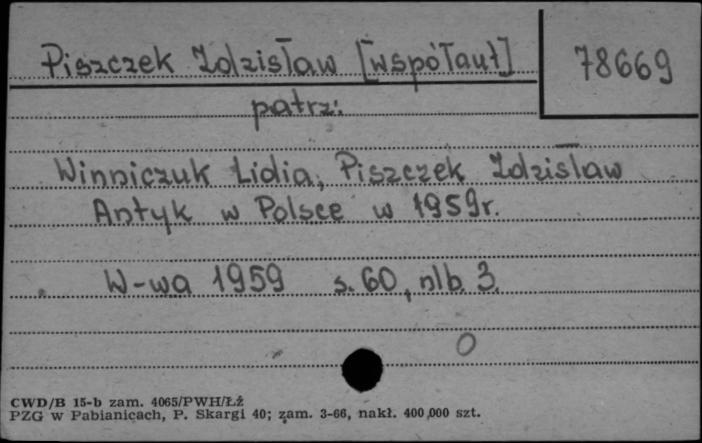 Piszczek Zdzisław [współaut]
78669
patrz:
Winniczuk Lidia, Piszczek Zdzisław
Antyk w Polsce w 1959r.
W-wa 1959 s. 60, nlb. 3.
0
CWD/B 15-b zam. 4065/PWH/Łź
PZG w Pabianicach, P. Skargi 40; zam. 3-66, nakł. 400,000 szt.